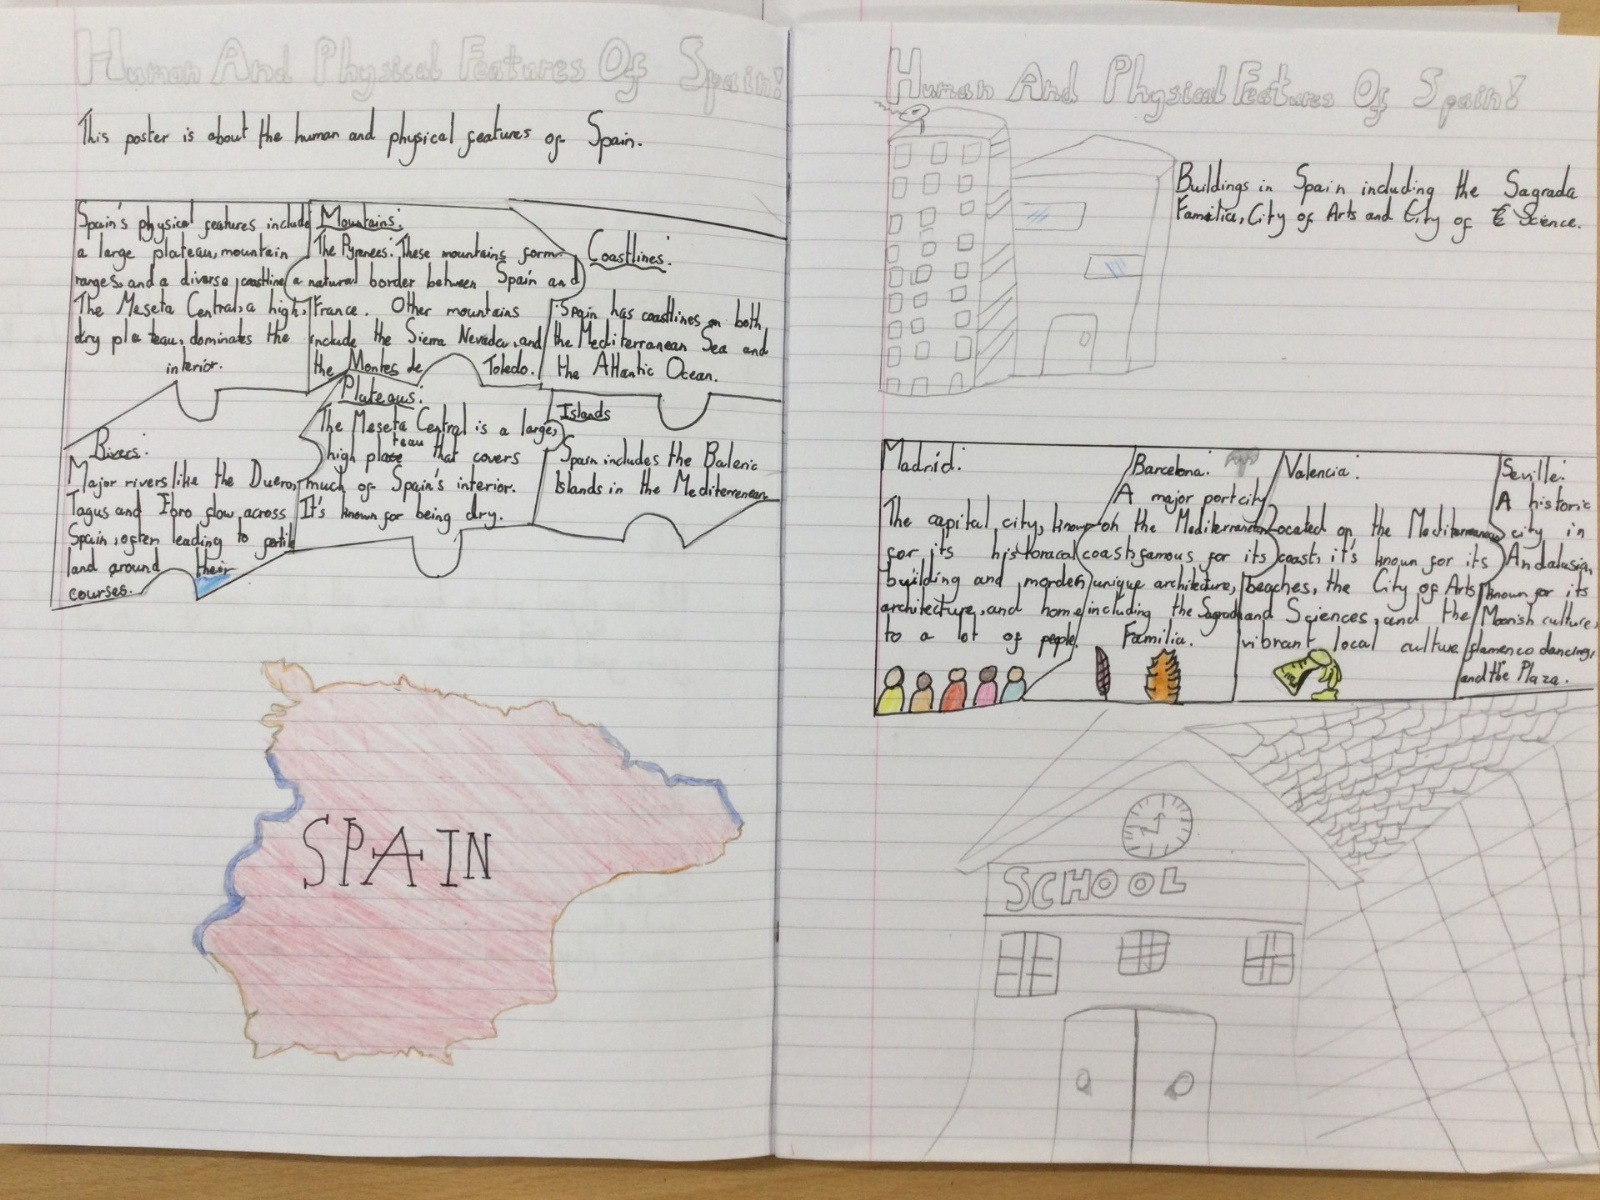 Human And Physical Features Of Spain!
This poster is about the human and physical features of Spain.
Spain's physical features include
a large plateau, mountain
ranges, and a diverse coastline
The Meseta Central, a high,
dry plateau, dominates the
interior.
Mountains:
The Pyrenees: These mountains form
a natural border between Spain and
France. Other mountains
include the Sierra Nevada, and
the Montes de Toledo.
Coastlines:
Spain has coastlines on both
the Mediterranean Sea and
the Atlantic Ocean.
Rivers:
Major rivers like the Duero,
Tagus and Ebro flow across
Spain, often leading to fertile
land around their
courses.
Plateaus:
The Meseta Central is a large,
high plateau that covers
much of Spain's interior.
It's known for being dry.
Islands
Spain includes the Baleric
Islands in the Mediterrenean
SPAIN
Human And Physical Features Of Spain!
Buildings in Spain including the Sagrada
Familia, City of Arts and City of Science.
Madrid:
The capital city, known
for its historacal
building and morden
architecture, and home
to a lot of people.
Barcelona:
A major port city
on the Mediterranean
coast, famous for its
unique architecture,
including the Sagrada
Familia.
Valencia:
Located on the Mediterranean
coast, it's known for its
beaches, the City of Arts
and Sciences, and the
vibrant local culture
Seville:
A historic
city in
Andalusia,
known for its
Moorish culture,
flamenco dancing,
and the Plaza.
SCHOOL